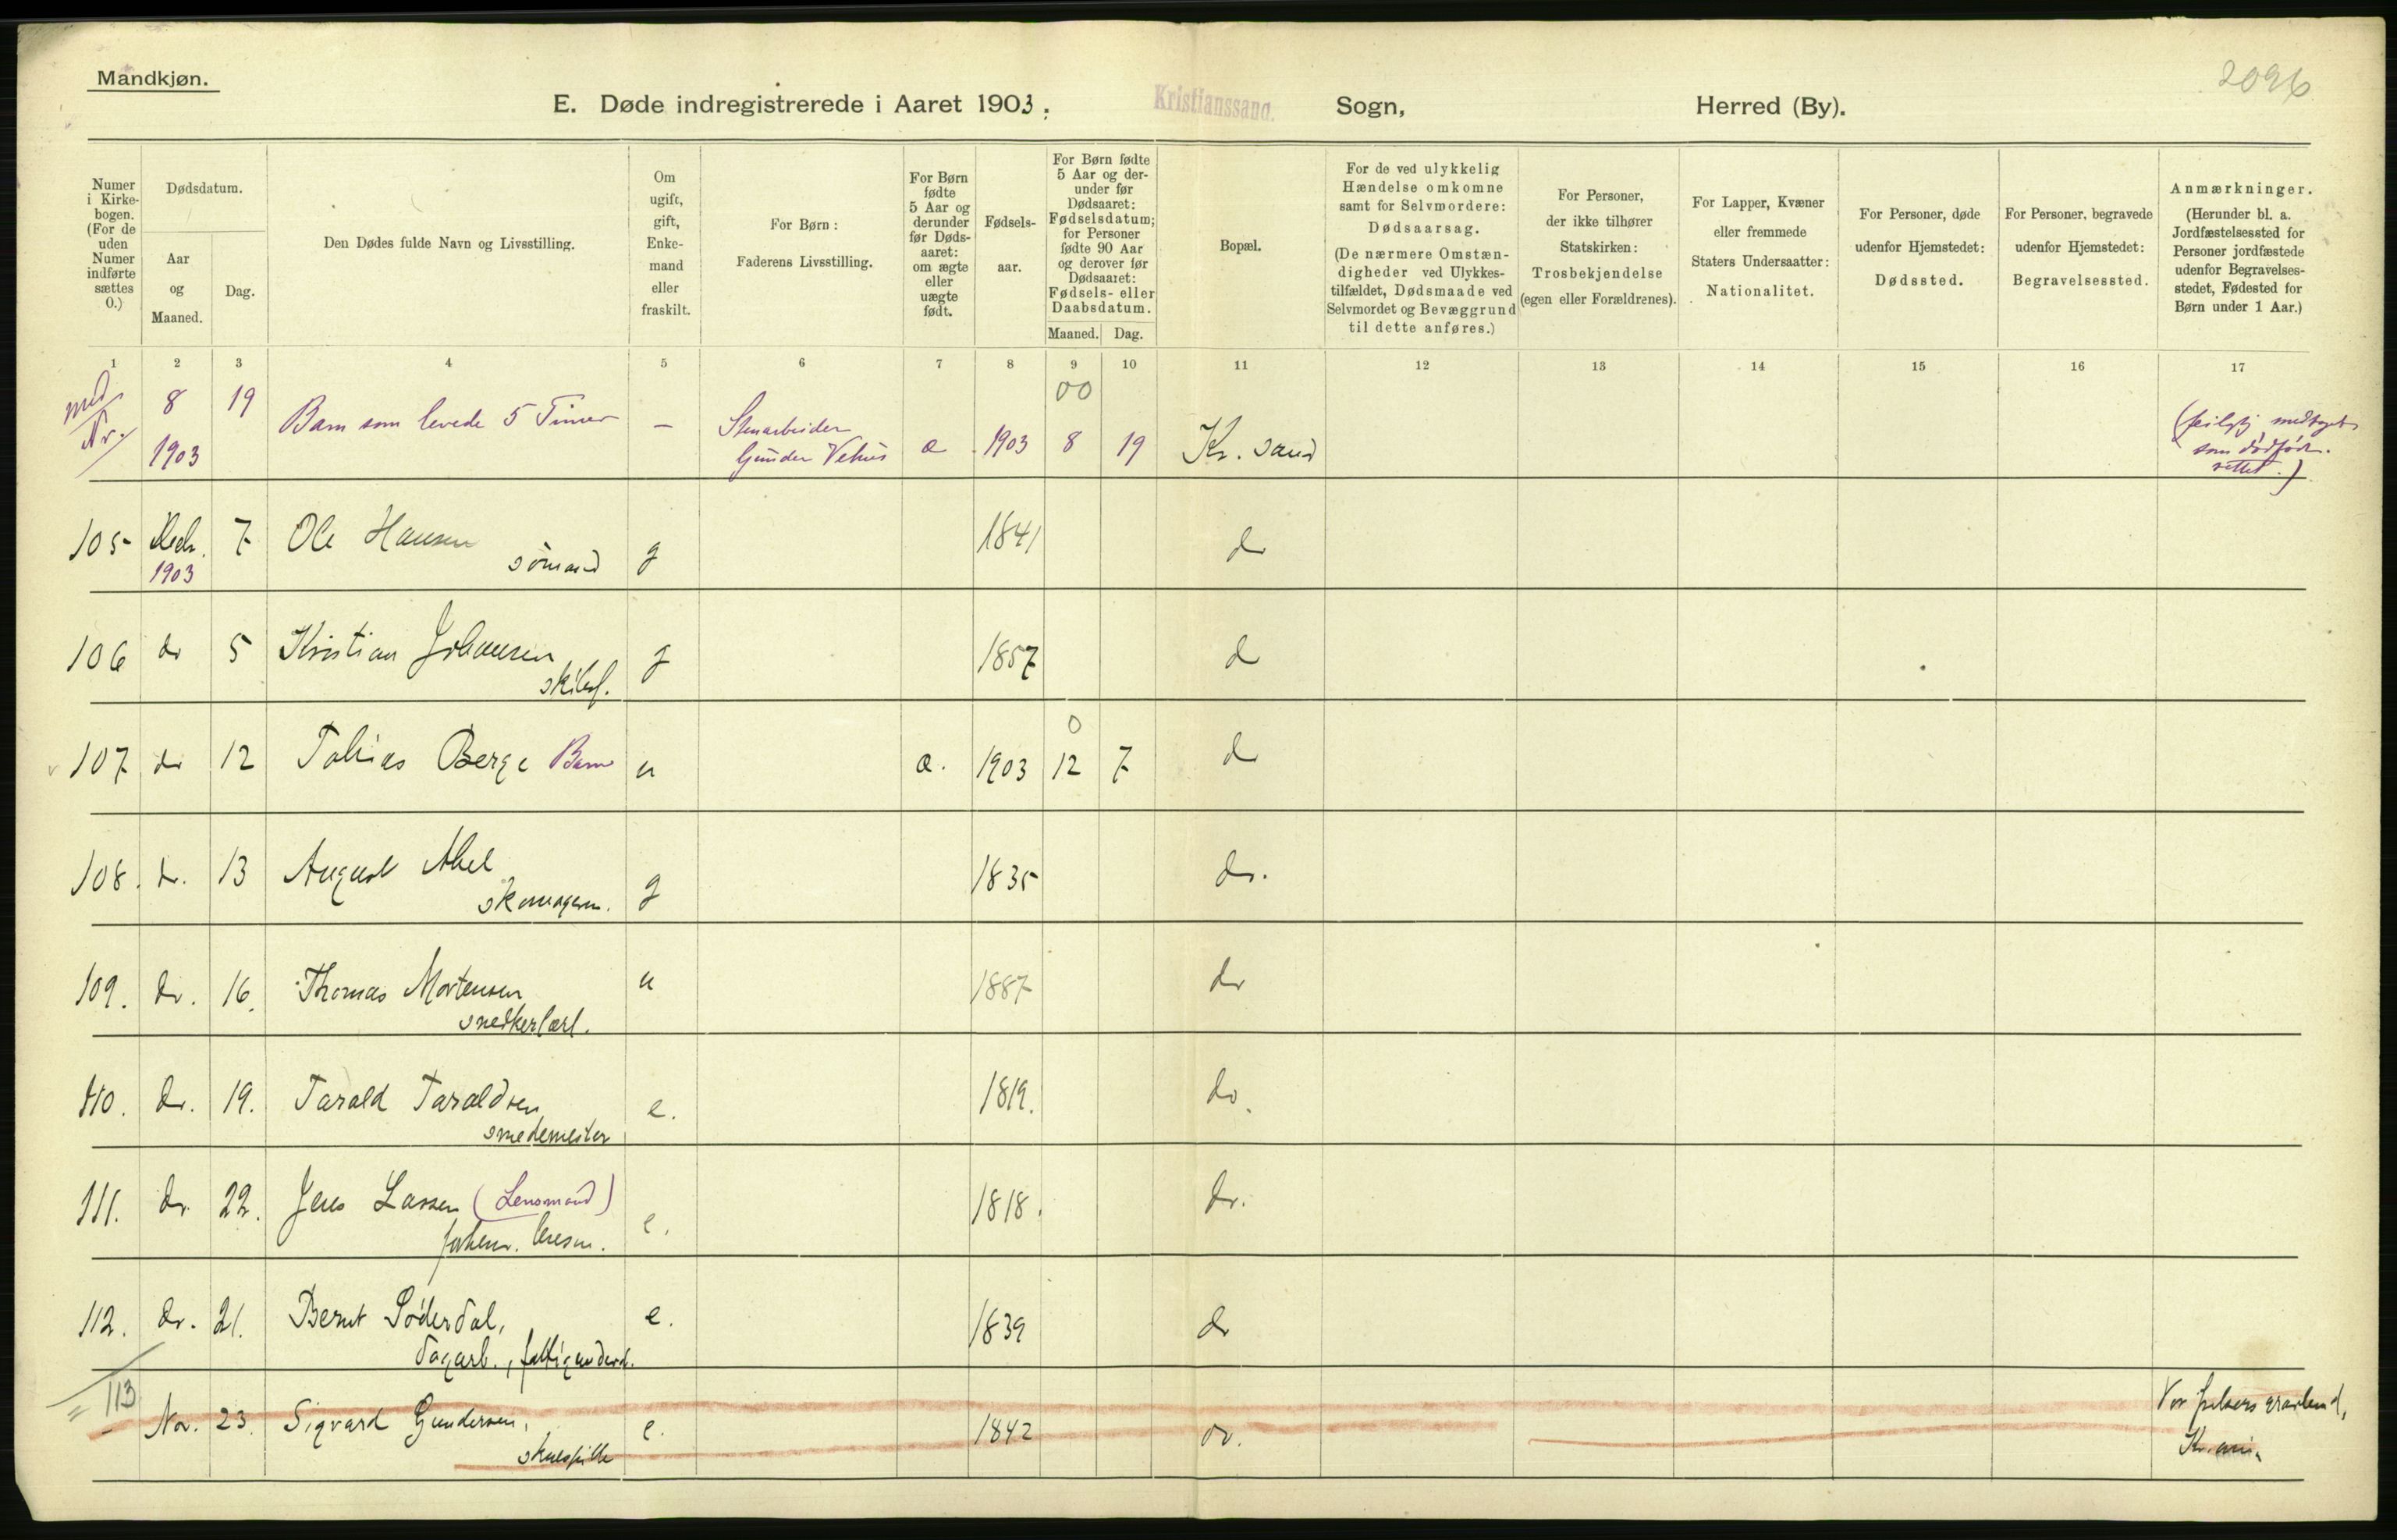 Mandkjøn.
2096
E. Døde indregistrerede i Aaret 1903. Kristianssand. Sogn, Herred (By).
Numer i Kirkebogen. (For de uden Numer indførte sættes 0.)
Dødsdatum.
Aar og Maaned.
Dag.
Den Dødes fulde Navn og Livsstilling.
Om ugift, gift, Enkemand eller fraskilt.
For Børn:
Faderens Livsstilling.
For Børn fødte 5 Aar og derunder før Dødsaaret: om ægte eller uægte født.
Fødselsaar.
For Børn fødte 5 Aar og derunder før Dødsaaret: Fødselsdatum; for Personer fødte 90 Aar og derover før Dødsaaret: Fødsels- eller Daabsdatum.
Maaned. Dag.
Bopæl.
For de ved ulykkelig Hændelse omkomne samt for Selvmordere: Dødsaarsag.
(De nærmere Omstændigheder ved Ulykkestilfældet, Dødsmaade ved Selvmordet og Bevæggrund til dette anføres.)
For Personer, der ikke tilhører Statskirken: Trosbekjendelse (egen eller Forældrenes).
For Lapper, Kvæner eller fremmede Staters Undersaatter: Nationalitet.
For Personer, døde udenfor Hjemstedet: Dødssted.
For Personer, begravede udenfor Hjemstedet: Begravelsessted.
Anmærkninger.
(Herunder bl. a. Jordfæstelsessted for Personer jordfæstede udenfor Begravelsesstedet, Fødested for Børn under 1 Aar.)
1 2 3 4 5 6 7 8 9 10 11 12 13 14 15 16 17
00
Nr. 8 1903 19 Barn som levede 5 Timer — Stenarbeider Gunder Vehus æ 1903 8 19 Kr. sand
som dødfødt
105 Decbr. 1903 7 Ole Hansen sömand g 1841 do
106 do 5 Kristian Johansen skibsf. g 1857 do
0
107 do 12 Tobias Berge Barn u æ. 1903 12 7 do
108. do. 13 August Abel skomagerm. g 1835 do.
109. do. 16. Thomas Mortensen snedkerlærl. u 1887 do
110. do. 19. Tarald Taraldsen smedemester e. 1819. do.
111. do. 22. Jens Lassen (Lensmand) forhenv. lensm. e. 1818. do.
112. do. 21. Bernt Söderdal, dagarb., fattigunderst. e. 1839 do
113 Nov. 23. Sigvard Gundersen, skuespiller e. 1842 do.
Vor frelsers gravlund, Kr.ania.